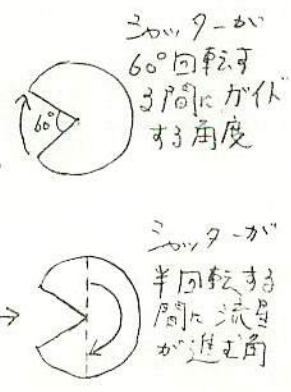 シャッターが
60°回転す
る間にガイド
する角度
60°
シャッターが
半回転する
間に流星
が進む角